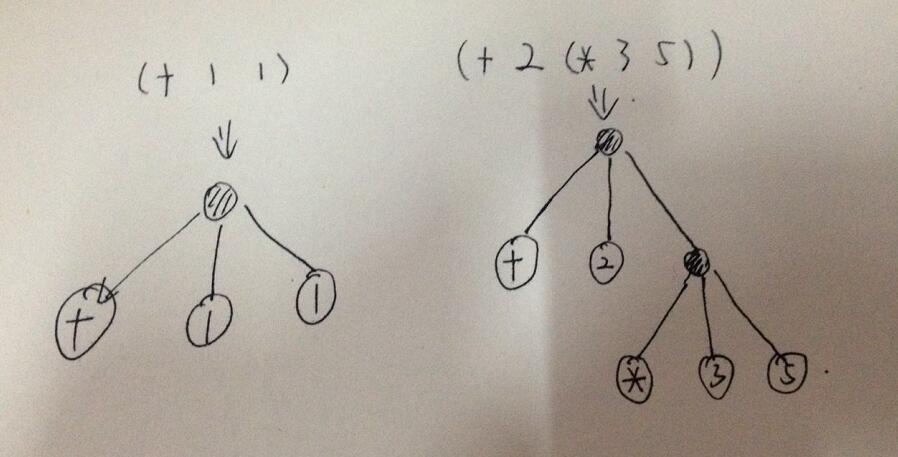 (+ 1 1)
+ 1 1
(+ 2 (* 3 5))
+ 2
* 3 5